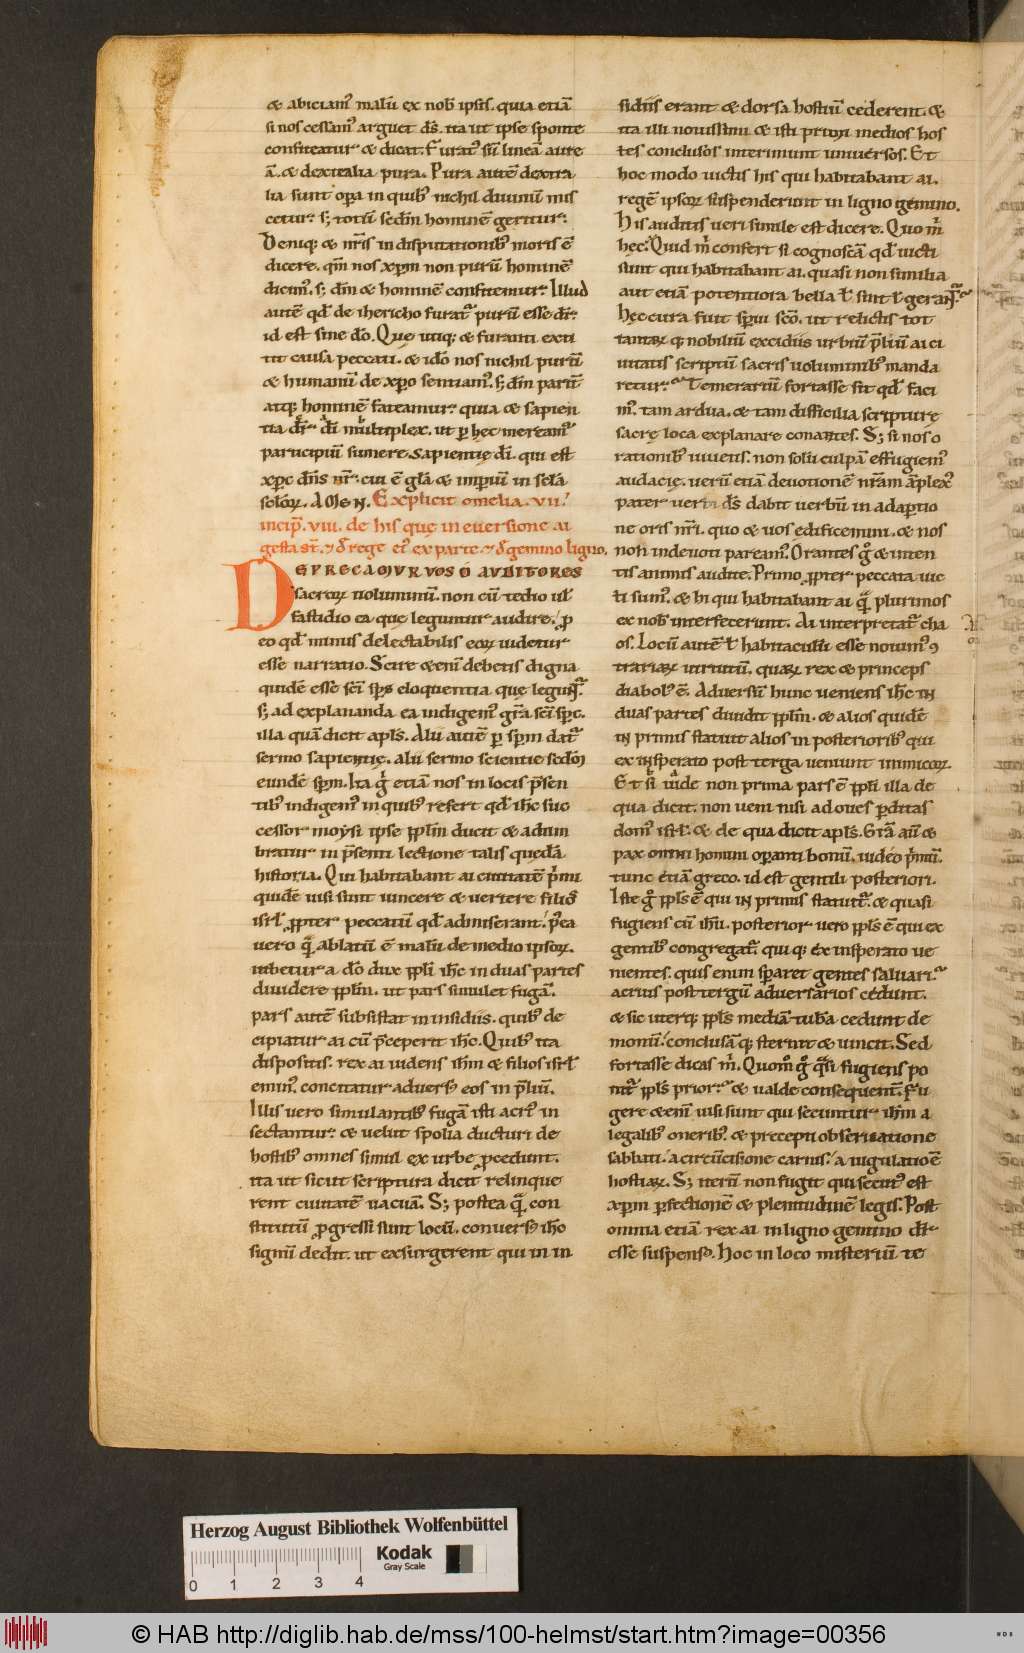 & abiciam᷒ malū ex nob̄ ipsis. quia etiā
si nos cessam᷒ arguet dn̄s. ita ut ipse sponte
confiteatur & dicat. furat᷒ sū lineā aure
ā. & dextralia pura. Pura autē dextra
lia sunt opa in quib᷒ nichil diuinū mis
cetur. s; totū sedm hominē geritur.
Deniq; & nr̄is in disputationib᷒ moris ē
dicere. qm̄ nos xp̄m non purū hominē
dicim᷒. s; dm̄ & hominē confitemur. Illud
autē qd̄ de ihericho furat᷑ purū esse dr̄.
id est sine dō. Quę utiq; & furanti exti
tit causa peccati. & idō nos nichil purū
& humanū de xp̄o sentiam᷒. s; dm̄ parit̄
atq; hominē fateamur. quia & sapien
tia dī dr̄ multiplex. ut p hęc meream᷑
participiū sumere sapientię dī. qui est
xp̄c dn̄s nr̄. cui ē gl̄a & imperiū in sęla
seloꝝ. AMEN. Explicit omelia. vii.
incip̄. viii. de his quę in euersione ai
gesta st̄. & de rege ei᷒ ex parte & de gemino ligno.
DEPRECAMUR VOS O AUDITORES
sacroꝝ uoluminū. non cū tedio ul̄
fastidio ea que leguntur audire. p
eo qd̄ minus delectabilis eoꝝ uidetur
esse narratio. Scire & enī debetis digna
quidē esse sc̄i sps̄ eloquentia quę legunt᷑.
s; ad explananda ea indigem᷒ gr̄a sc̄i sp̄c.
illa quā dicit apls̄. Alii autē p sp̄m dat᷑
sermo sapientię. alii sermo scientie sedm
eundē sp̄m. Ita g̊ etiā nos in locis p̄sen
tib᷒ indigem᷒ in quib᷒ refert qd̄ ih̄c suc
cessor moysi ipse pp̄lm ducit & adum
bratur in p̄senti lectione talis quedā
historia. Qui habitabant ai ciuitatē p̄mi
quidē uisi sunt uincere & uertere filios
isr̄l. ppter peccatū qd̄ admiserant. p̄ea
uero q̄ ablatū ē malū de medio ipsoꝝ.
iubetur a dō dux pp̄li ih̄c in duas partes
diuidere pp̄lm. ut pars simulet fugā.
pars autē subsistat in insidiis. quib᷒ de
cipiatur ai cū p̄ceperit ih̄c. Quib᷒ ita
dispositis. rex ai uidens ih̄m & filios isr̄l
emin᷒. concitatur aduers᷒ eos in p̄liū.
Illis uero simulantib᷒ fugā isti acri᷒ in
sectantur. & uelut spolia ducturi de
hostib᷒ omnes simul ex urbe pcedunt.
ita ut sicut scriptura dicit relinque
rent ciuitatē uacuā. S; postea q̄ con
stitutū pgressi sunt locū. conuers᷒ ih̄c
signū dedit. ut exsurgerent qui in in
sidiis erant & dorsa hostiū cederent. &
ita illi nouissimi & isti priori medios hos
tes conclusos interimunt uniuersos. Et
hoc modo uictis his qui habitabant ai.
regē ipsoꝝ suspenderunt in ligno gemino.
His auditis ueri simile est dicere. Quo m̄
hęc. Quid m̄ confert si cognoscā qd̄ uicti
sunt qui habitabant ai. quasi non similia
aut etiā potentiora bella ul̄ sint ul̄ gerant᷑.
Hęc cura fuit sp̄ui sc̄o. ut relictis tot
tantaꝝ q; nobiliū excidiis urbiū p̄liū ai ci
uitatis scriptū sacris uoluminib᷒ manda
retur. Temerariū fortasse sit qd̄ faci
m᷒. tam ardua. & tam difficilia scripturę
sacrę loca explanare conantes. S; si nos o
rationib᷒ iuuetis. non solū culpā effugiem᷒
audacię. uerū etiā deuotionē nr̄am āplex᷒
pater ueri ds̄ dabit uerbū in adapertio
ne oris nr̄i. quo & uos edificemini. & nos
non indeuoti paream᷒. Orantes g̊ & inten
tis animis audite. Primo. ppter peccata uic
ti sum᷒. & hi qui habitabant ai q̄ plurimos
ex nob̄ interfecerunt. Ai interpretat᷑ cha
os. Locū autē ul̄ habitaculū esse nouim᷒ 9
trariaꝝ uirtutū. quaꝝ rex & princeps
diabol᷒ ē. Aduersū hunc ueniens ih̄c in
duas partes diuidit pp̄lm. & alios quidē
in primis statuit alios in posteriorib᷒ qui
ex insperato post terga ueniunt inimicoꝝ.
Et si uide non prima pars ē pp̄li illa de
qua dicit. non ueni nisi ad oues p̄ditas
dom᷒ isr̄l. & de qua dicit apls̄. Gr̄a aū &
pax omni homini operanti bonū. iudeo p̄mū.
tunc etiā greco. id est gentili posteriori.
Iste g̊ pp̄ls ē qui in primis statuit᷑. & quasi
fugiens cū ih̄u. posterior uero pp̄ls ē qui ex
gentib᷒ congregat᷑. qui q; ex insperato ue
nientes. quis enim speraret gentes saluari.
acrius post tergū aduersarios cedunt.
& sic uterq; pp̄ls mediā turba cedunt de
moniū. conclusā q; sternit & uincit. Sed
fortasse dicas m̄. Quom᷒ g̊ q̄si fugiens po
nit᷑ pp̄ls prior. & ualde consequent᷑. Fu
gere & enī uisi sunt qui secuntur ih̄m a
legalib᷒ onerib᷒. & precepti obseruatione
sabbati. a circūcisione carnis. a iugulatiōe
hostiaꝝ. S; iterū non fugit qui secut᷒ est
xp̄m pfectionē & plenitudinē legis. Post
omnia etiā rex ai in ligno gemino dr̄
esse suspens᷒. Hoc in loco misteriū te
Herzog August Bibliothek Wolfenbüttel
Kodak
Gray Scale
0 1 2 3 4
© HAB http://diglib.hab.de/mss/100-helmst/start.htm?image=00356